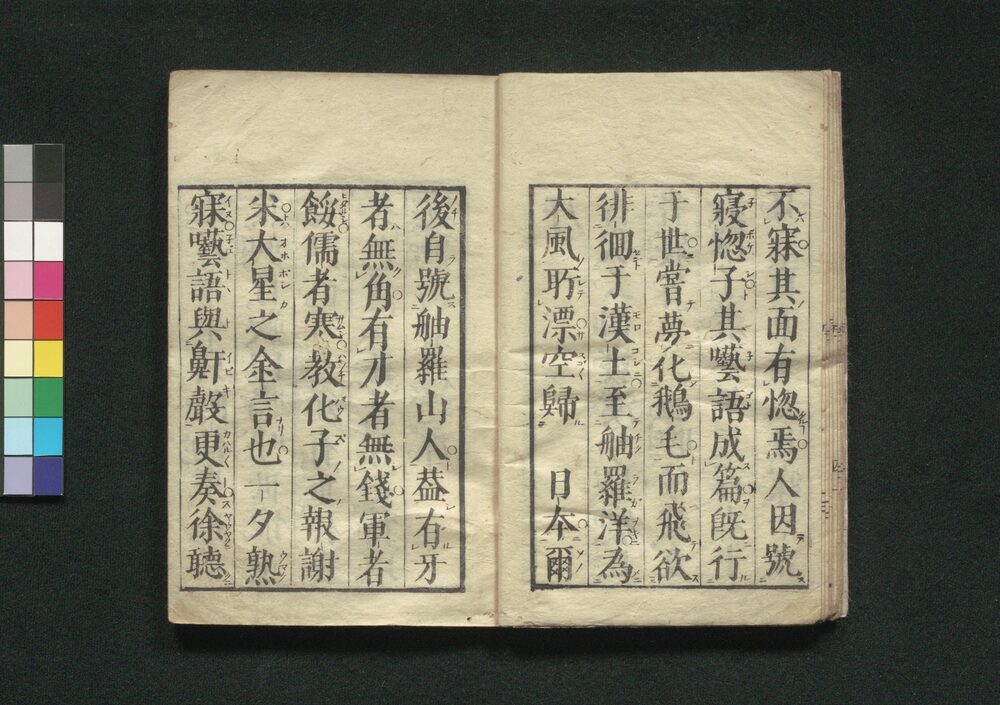 不寐其面有惚焉人因號
寢惚子其囈語成篇既行
于世嘗夢化鵝毛而飛欲
徘徊于漢土至舳羅洋為
大風所漂空歸　日夲爾
後自號舳羅山人葢有牙
者無角有才者無錢軍者
餒儒者寒教化子之報謝
米大星之金言也一夕熟
寐囈語與鼾聲更奏徐聽